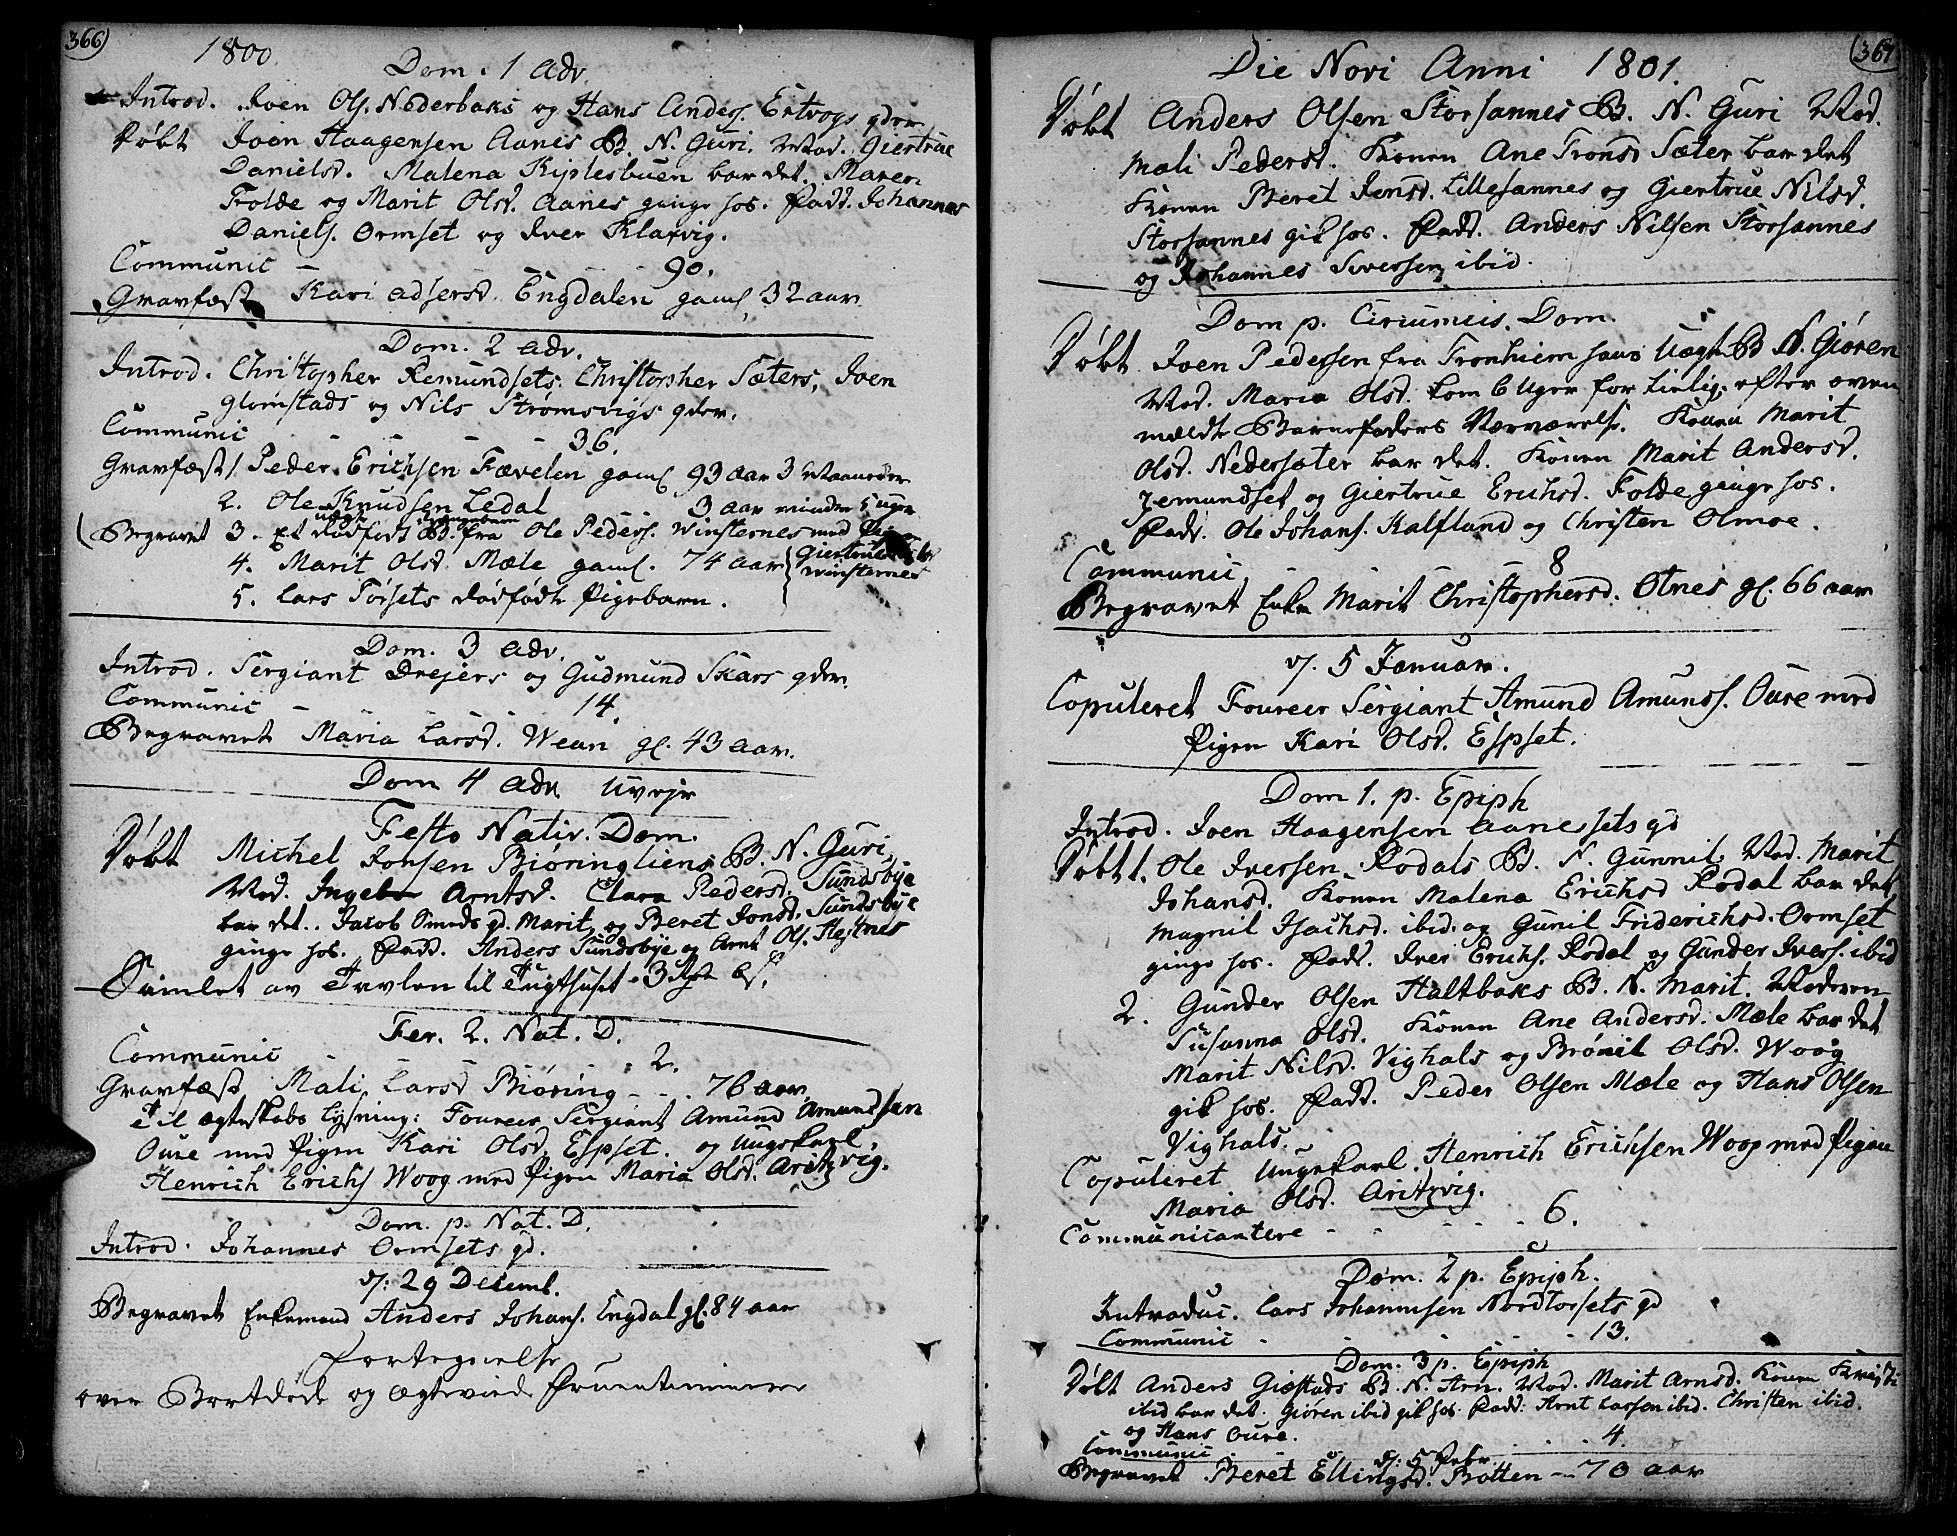 366)
1800.
Dom. 1 Adv.
Introd. Joen Ols. Nederbaks og Hans Anders. Ertvogs qder
Døbt Joen Haagensen Aanes B. N. Guri. Mod. Giertrue
Danielsd. Malena Kiplesbuen bar det. Maren
Folde og Marit Olsd. Aanes ginge hos. Fadd. Johannes
Daniels. Ormset og Iver Klaxvig.
Communic - - - 90.
Gravfæst Kari Adsersd. Engdalen gaml. 32 aar
Dom. 2 Adv.
Introd. Christopher Remundsets, Christopher Sæters, Joen
Glomstads og Nils Strømsvigs qder.
Communic - - - 36.
Gravfæst 1. Peder Erichsen Fævelen gaml 93 aar 3 Maaneder
2. Ole Knudsen Ledal 3 aar minder 5 uger
Begravet 3. Et uægte dødfødt B. fra Ole Peders. Winsternes med
Giertrue
Winsternes
4. Marit Olsd. Mæle gaml. 74 aar
5. Lars Torsets dødfødte Pigebarn.
Dom. 3 Adv.
Introd. Sergiant Drejers og Gudmund Skars qder.
Communic - - - 14.
Begravet Maria Larsd. Wean gl. 43 aar.
Dom 4 Adv. Uvejr
Festo Nativ. Dom.
Døbt Michel Jonsen Biøringliens B. N. Guri,
Mod. Ingebor Arntsd. Clara Pedersd. Sundsbye
bar det. Jacob Smeds qd. Marit og Beret Jonsd. Sundsbye
ginge hos. Fadd. Anders Sundsbye og Arnt Ols.
Samlet av Tavlen til Tugthuset - 3
Fer. 2. Nat. D.
Communic - - - 2.
Gravfæst Mali Larsd Biøring - - - 76 aar
Til Ægteskabs Lysning: Foureer Sergiant Amund Amundsen
Oure med Pigen Kari Olsd. Espset. og Ungekarl
Henrich Erichs Woog med Pigen Maria Olsd. Aritzvig.
Dom. p. Nat. D.
Introd. Johannes Ormsets qd.
d. 29 Decemb.
Begravet Enkemand Anders Johans. Engdal gl. 84 aar
Fortegnelse
over Bortdøde og Ægteviede Fruentimmere
(367
Die Novi Anni 1801.
Døbt Anders Olsen Storsannes B. N. Guri Mod.
Mali Pedersd. Konen Ane Tronsd Sæter bar det
Konen Beret Jensd. Lillesannes og Giertrue Nilsd.
Storsannes gik hos. Fadd. Anders Nilsen Storsannes
og Johannes Siversen ibid.
Dom p. Circumcis. Dom.
Døbt Joen Pedersen fra Tronhiem hans Uægte B N. Giøren
Mod. Maria Olsd. kom 6 Uger for tilig efter oven
meldte Barnefaders Nærværelse. Konen Marit
Olsd. Nedersæter bar det. Konen Marit Andersd.
Remundset og Giertrue Erichsd. Folde ginge hos.
Fadd. Ole Johans. Kalfland og Christen Olmoe.
Communic - - 8
Begravet Enke Marit Christophersd. Otnes gl. 66 aar
d. 5 Januar.
Copuleret Foureer Sergiant Amund Amunds. Oure med
Pigen Kari Olsd. Espset.
Dom 1. p. Epiph
Introd. Joen Haagensen Aanessets qd
Døbt 1. Ole Iversen Rodals B. N. Gunnil. Mod. Marit
Johansd. Konen Malena Erichsd Rodal bar det
Magnil Isachsd. ibid. og Gunil Friderichsd. Ormset
ginge hos. Fadd. Iver Erichs. Rodal og Gunder Ivers. ibid
2. Gunder Olsen Haltbaks B. N. Marit. Moderen
Susanna Olsd. Konen Ane Andersd. Mæle bar det
Marit Nilsd. Vighals og Brønil Olsd. Woog
gik hos. Fadd. Peder Olsen Mæle og Hans Olsen
Vighals.
Copuleret Ungekarl. Henrich Erichsen Woog med Pigen
Maria Olsd. Aritzvig.
Communicantere - - - 6.
Dom. 2 p. Epiph.
Introduc. Lars Johannesen Nordtorsets qd
Communic - - - 13.
Dom. 3 p. Epiph
Døbt Anders Giøstads B. N. Arn. Mod. Marit Arnsd. Konen
ibid bar det. Giøren ibid gik hos. Fadd: Arnt Larsen ibid. Christen ibid.
og Hans Oure.
Communic - - - 4.
d. 5 Febr
Begravet Beret Ellingsd. Botten - 70 aar